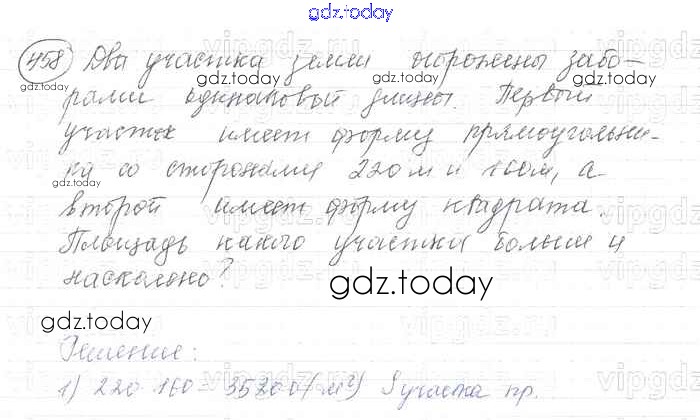 gdz.today
458 Два участка земли огорожены забо-
gdz.today gdz.today gdz.today
рами одинаковой длины. Первый
участок имеет форму прямоугольни-
ка со сторонами 220 м и 160 м, а
gdz.today
второй имеет форму квадрата.
Площадь какого участка больше и
на сколько?
gdz.today
gdz.today
Решение:
1) 220 · 160 = 35200 (м²) S участка пр.